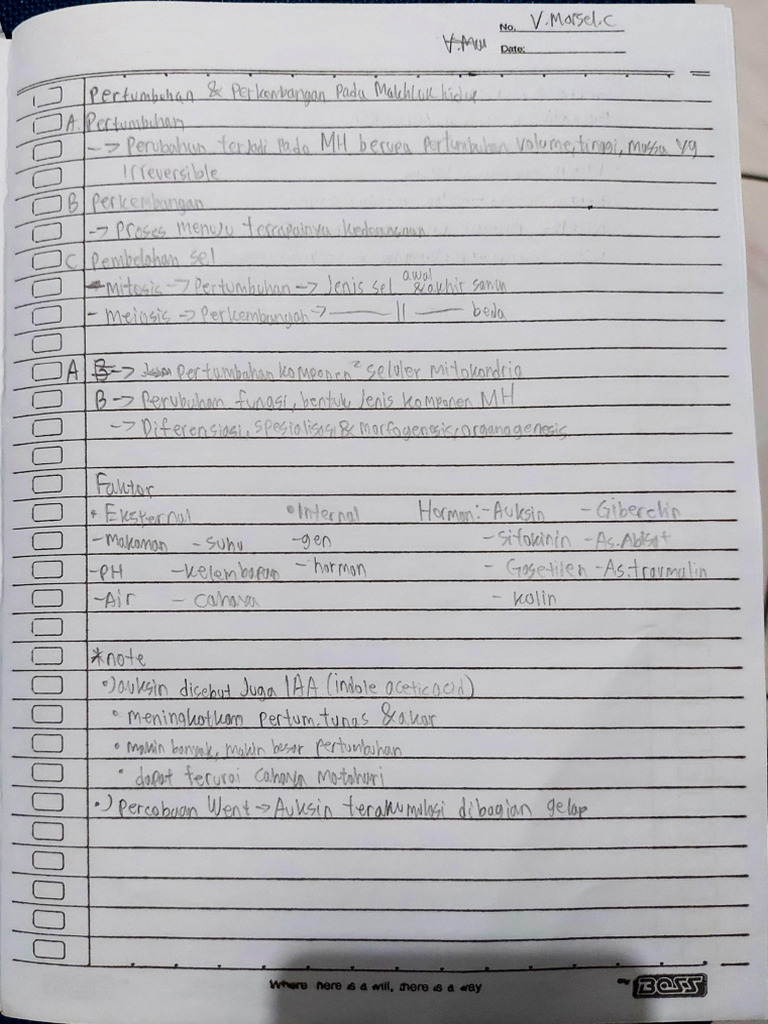 No. V.Marsel.C
V.Mar
Date:
Pertumbuhan & Perkembangan Pada Makhluk hidup
A. Pertumbuhan
-> Perubahan terjadi Pada MH berupa Pertumbuhan Volume, tinggi, massa yg
Irreversible
B Perkembangan
-> Proses menuju tercapainya kedewasaan
C Pembelahan sel
- mitosis -> Pertumbuhan -> Jenis sel awal & akhir sama
- meiosis -> Perkembangan -> —— || —— beda
A B -> Pertumbahan komponen² seluler mitokondria
B -> Perubuhan fungsi, bentuk, Jenis komponen MH
-> Diferensiasi, spesialisasi & morfogenesis, organogenesis
Faktor
• Eksternal • Internal Hormon: - Auksin - Giberelin
- makanan - suhu - gen - sitokinin - As. Absat
- PH - kelembapan - hormon - Gasetilen - As. traumalin
- Air - cahaya - kolin
*note
•) auksin disebut Juga IAA (indole acetic acid)
• meningkatkan pertum. tunas & akar
• makin banyak, makin besar pertumbuhan
• dapat terurai cahaya matahari
•) percobaan Went -> Auksin terakumulasi dibagian gelap
Where here is a will, there is a way
BOSS